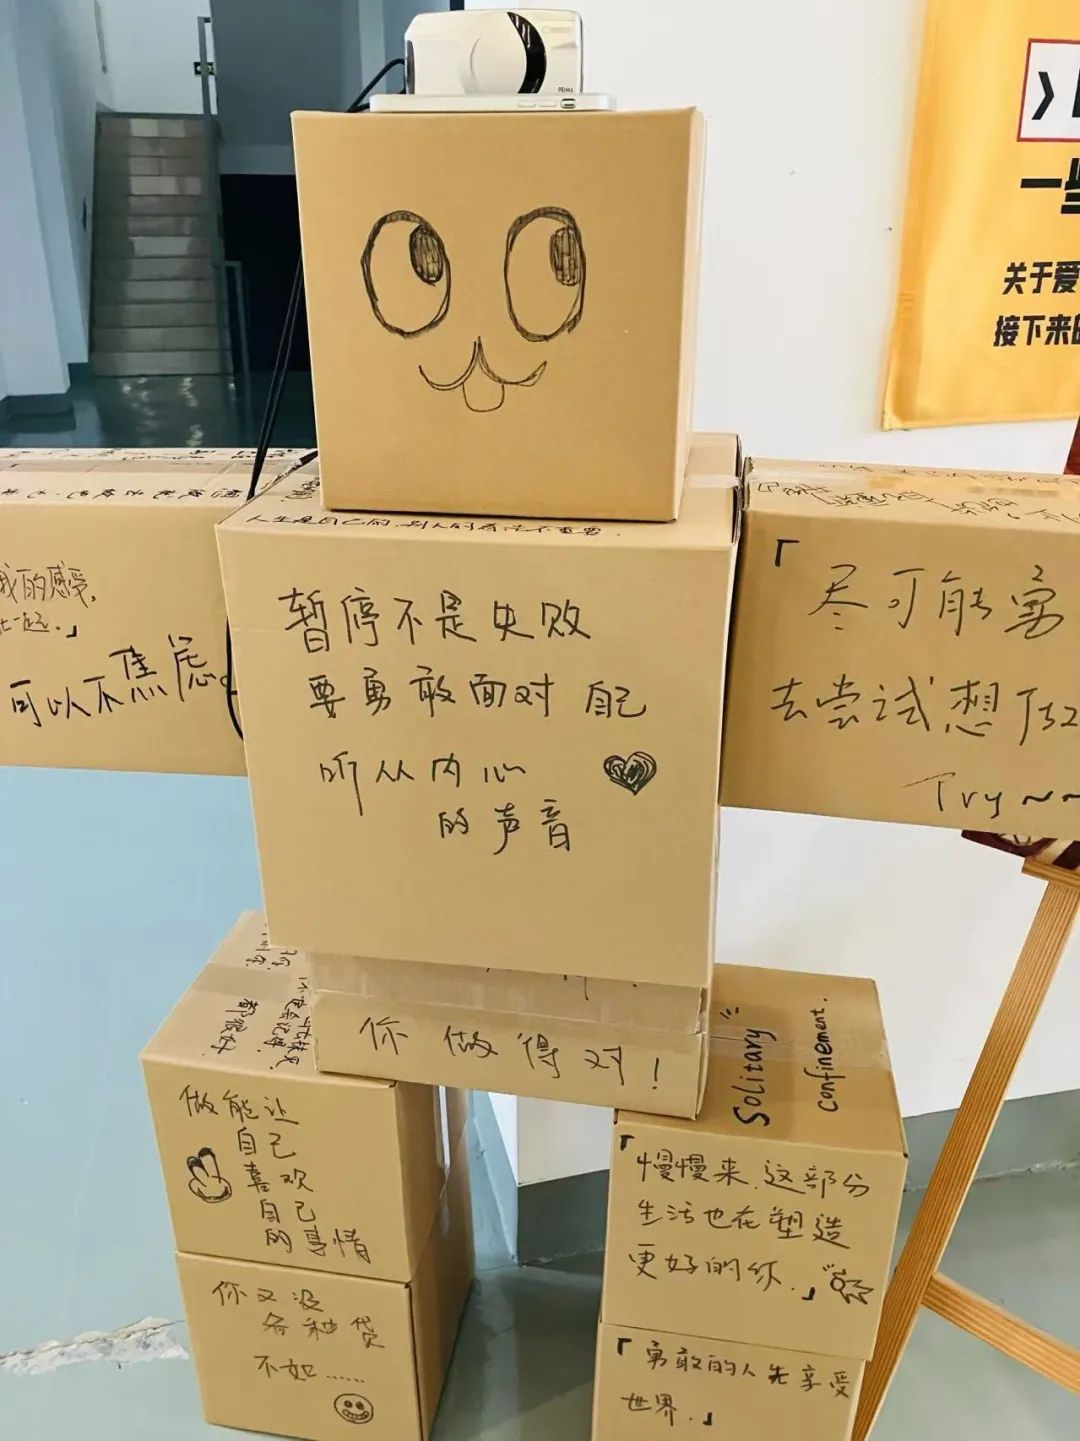 PRIMA
一些
关于爱
接下来的
人生是自己的,别人的看法不重要.
我的感受,
一起.」
可以不焦虑。
暂停不是失败
要勇敢面对自己
听从内心
的声音
「尽可能
去尝试想
Try~~
你做得对!
都很好.
做能让
自己
喜欢
自己
的事情
你又没
各种贷
不如......
Solitary
confinement.
「慢慢来,这部分
生活也在塑造
更好的你.」
「勇敢的人先享受
世界.」